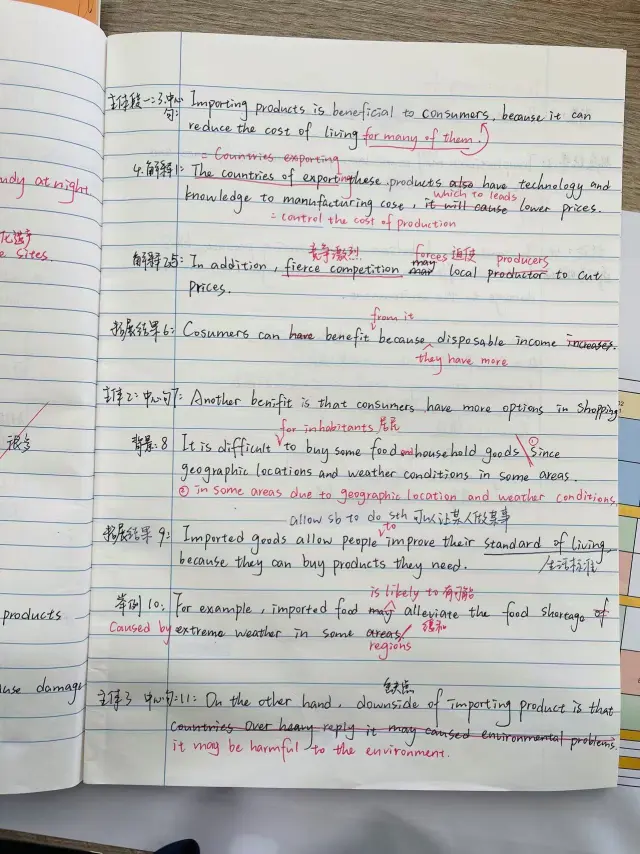 udy at night
e sites
很多
products
use damage
主体段一:3.中心句: Importing products is beneficial to consumers, because it can
reduce the cost of living for many of them.
= Countries exporting
4.解释1: The countries of exporting these products also have technology and
which to leads
knowledge to manufacturing cost, it will cause lower prices.
= control the cost of production
竞争激烈 forces 迫使 producers
解释2:5: In addition, fierce competition may local productor to cut
prices.
from it
拓展结果6: Cosumers can have benefit because disposable income increases.
they have more
主体2: 中心句7: Another benifit is that consumers have more options in shopping.
for inhabitants 居民
背景:8 It is difficult to buy some food and household goods ① Since
geographic locations and weather conditions in some areas.
② in some areas due to geographic location and weather conditions.
allow sb to do sth 可以让某人做某事
to
拓展结果9: Imported goods allow people improve their standard of living,
because they can buy products they need. 生活标准
is likely to 有可能
举例10: For example, imported food may alleviate the food shortage of
缓和
Caused by extreme weather in some areas/
regions
缺点
主体3 中心句:11: On the other hand, downside of importing product is that
Countries over heavy reply it may caused environmental problems.
it may be harmful to the environment.